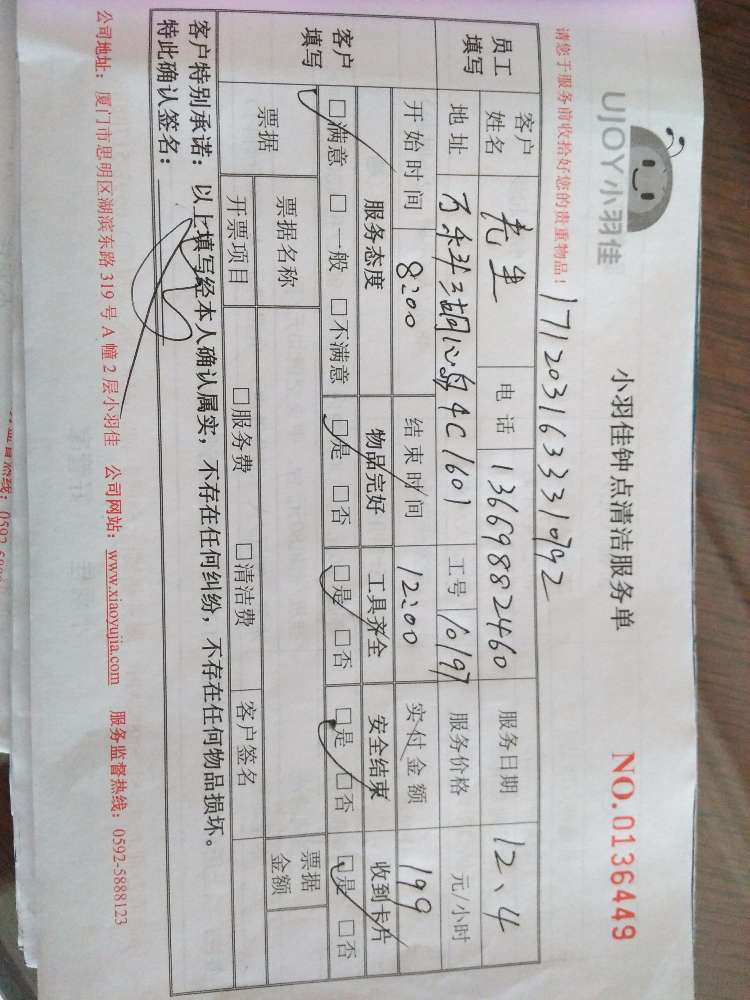 UJOY小羽佳
小羽佳钟点清洁服务单
NO.0136449
请您于服务前收拾好您的贵重物品!
171203163331092
员工填写 客户姓名 先生 电话 13669882460 服务日期 12、4
地址 湖心岛4C1601 工号 10197 服务价格 元/小时
开始时间 8:00 结束时间 12:00 实付金额 199
客户填写 服务态度 物品完好 工具齐全 安全结束 收到卡片
□满意 □一般 □不满意 □是 □否 □是 □否 □是 □否 □是 □否
票据 票据名称 票据金额
开票项目 □服务费 □清洁费 客户签名
客户特别承诺:以上填写经本人确认属实,不存在任何纠纷,不存在任何物品损坏。
特此确认签名:
公司地址:厦门市思明区湖滨东路319号A幢2层小羽佳 公司网站:www.xiaoyujia.com 服务监督热线:0592-5888123